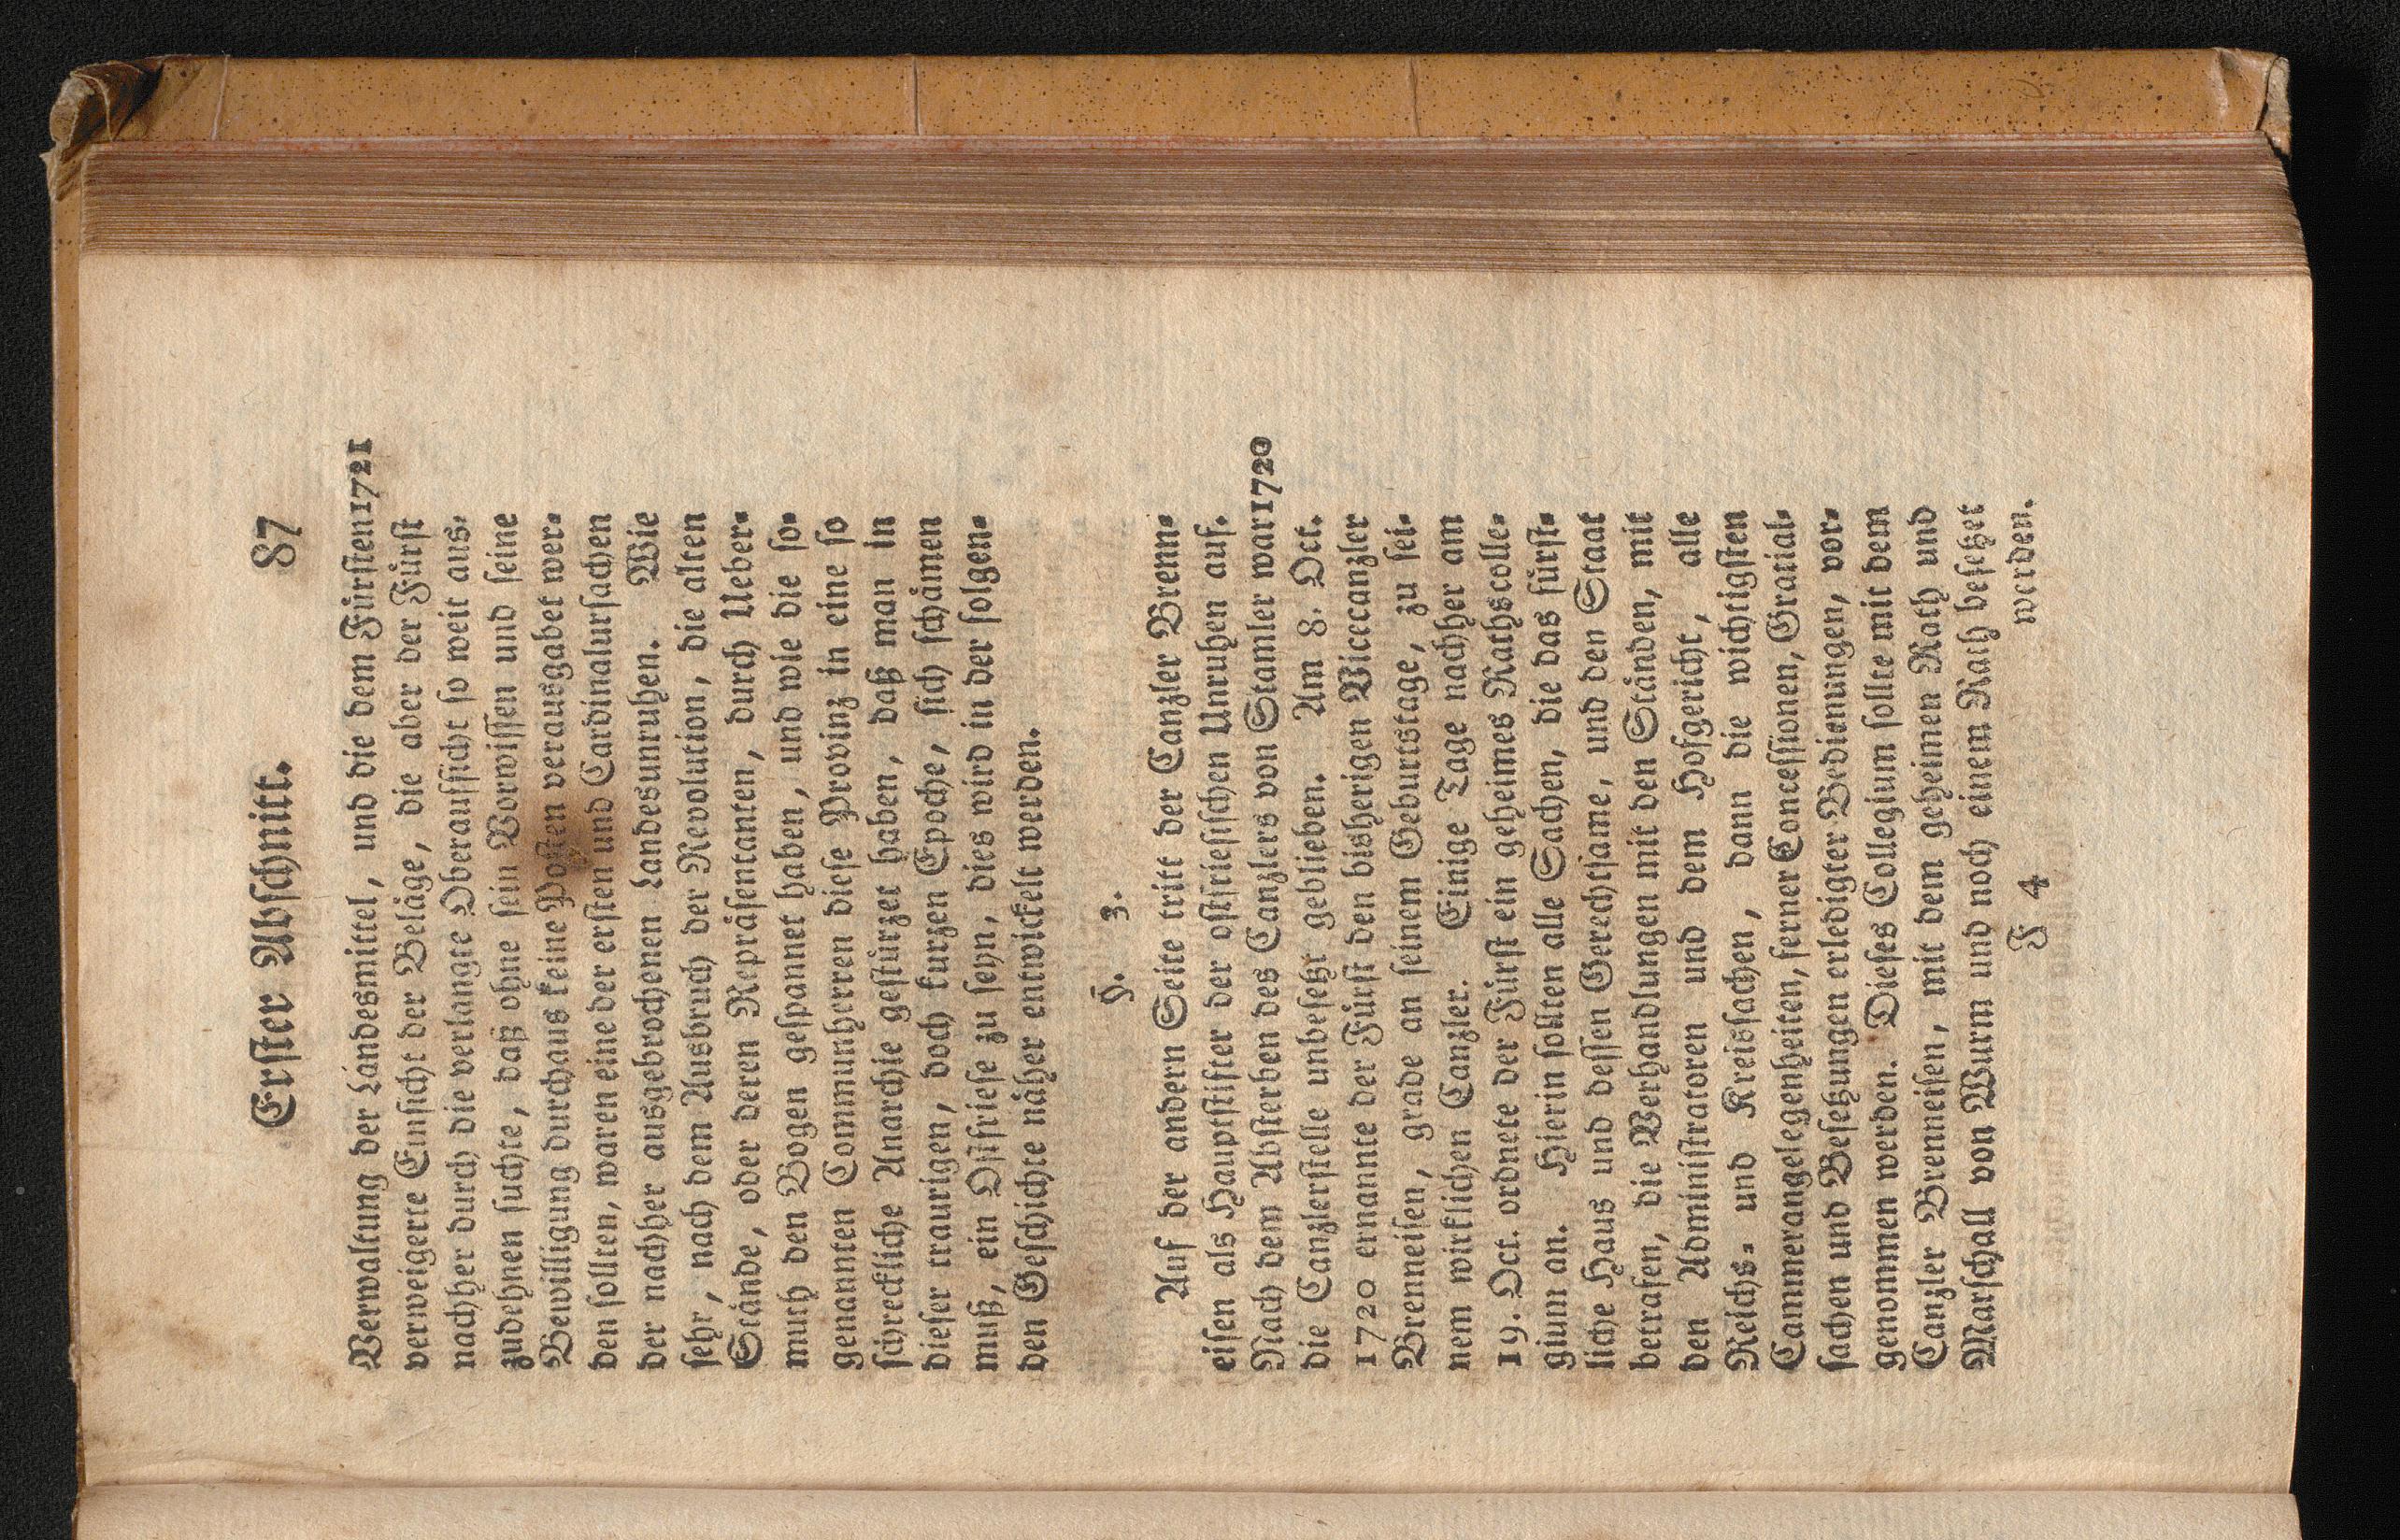 Erster Abschnitt. 87
Verwaltung der Landesmittel, und die dem Fürsten 1721
verweigerte Einsicht der Beläge, die aber der Fürst
nachher durch die verlangte Oberaufsicht so weit aus-
zudehnen suchte, daß ohne sein Vorwissen und seine
Bewilligung durchaus keine Posten verausgabet wer-
den sollten, waren eine der ersten und Cardinalursachen
der nachher ausgebrochenen Landesunruhen. Wie
sehr, nach dem Ausbruch der Revolution, die alten
Stände, oder deren Repräsentanten, durch Ueber-
muth den Bogen gespannet haben, und wie die so-
genannten Communherren diese Provinz in eine so
schreckliche Anarchie gestürzet haben, daß man in
dieser traurigen, doch kurzen Epoche, sich schämen
muß, ein Ostfriese zu seyn, dies wird in der folgen-
den Geschichte näher entwickelt werden.
§. 3.
Auf der andern Seite tritt der Canzler Brenn-
eisen als Hauptstifter der ostfriesischen Unruhen auf.
Nach dem Absterben des Canzlers von Stamler war 1720
die Canzlerstelle unbesetzt geblieben. Am 8. Oct.
1720 ernannte der Fürst den bisherigen Vicecanzler
Brenneisen, grade an seinem Geburtstage, zu sei-
nem wirklichen Canzler. Einige Tage nachher am
19. Oct. ordnete der Fürst ein geheimes Rathscolle-
gium an. Hierin sollten alle Sachen, die das fürst-
liche Haus und dessen Gerechtsame, und den Staat
betrafen, die Verhandlungen mit den Ständen, mit
den Administratoren und dem Hofgericht, alle
Reichs- und Kreissachen, dann die wichtigsten
Cammerangelegenheiten, ferner Concessionen, Gratial-
sachen und Besetzungen erledigter Bedienungen, vor-
genommen werden. Dieses Collegium sollte mit dem
Canzler Brenneisen, mit dem geheimen Rath und
Marschall von Wurm und noch einem Rath besetzet
F 4 werden.